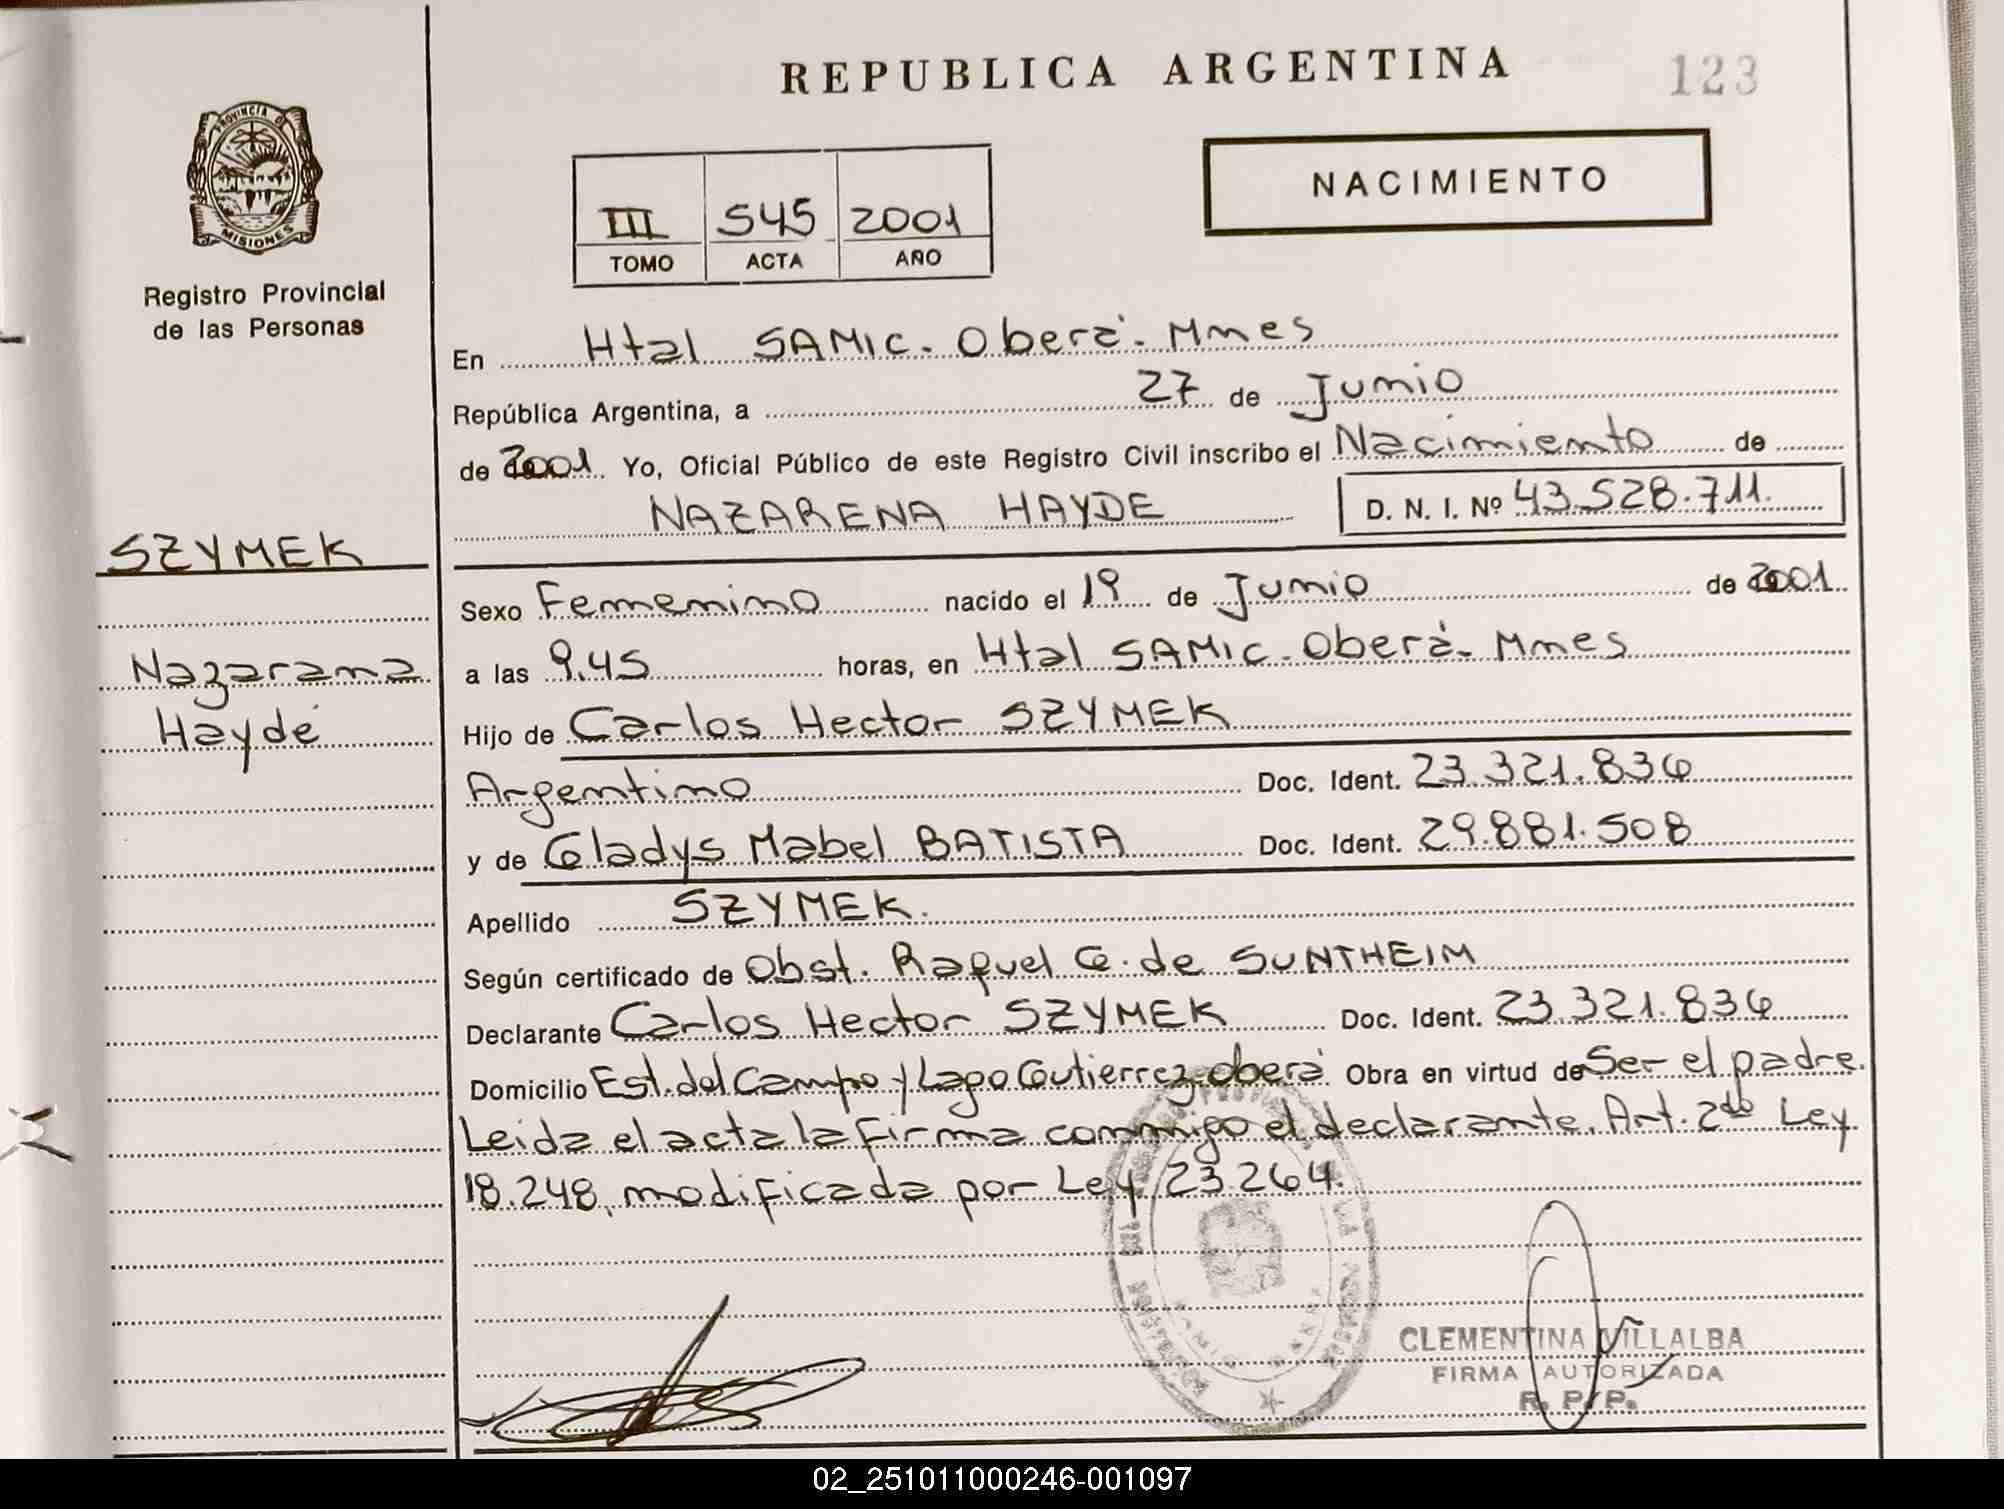 REPUBLICA ARGENTINA
123
PROVINCIA DE
MISIONES
Registro Provincial
de las Personas
III 545 2001
TOMO ACTA AÑO
NACIMIENTO
En Htal SAMIC. Oberá. Mnes
República Argentina, a 27 de Junio
de 2001 Yo, Oficial Público de este Registro Civil inscribo el Nacimiento de
NAZARENA HAYDE D. N. I. Nº 43.528.711.
SZYMEK
Nazarena
Haydé
Sexo Femenino nacido el 19 de Junio de 2001
a las 9.45 horas, en Htal SAMIC. Oberá. Mnes
Hijo de Carlos Hector SZYMEK
Argentino Doc. Ident. 23.321.836
y de Gladys Mabel BATISTA Doc. Ident. 29.881.508
Apellido SZYMEK.
Según certificado de Obst. Raquel G. de SUNTHEIM
Declarante Carlos Hector SZYMEK Doc. Ident. 23.321.836
Domicilio Est. del Campo y Lago Gutierrez-Oberá Obra en virtud de Ser el padre.
Leida el acta la firma conmigo el declarante. Art. 2do Ley
18.248, modificada por Ley 23.264.
CLEMENTINA VILLALBA
FIRMA AUTORIZADA
R. P. P.
02_251011000246-001097